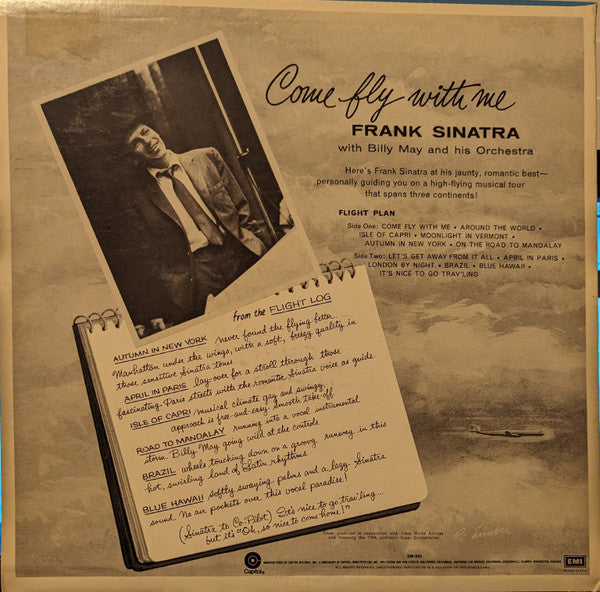 Come fly with me
FRANK SINATRA
with Billy May and his Orchestra
Here's Frank Sinatra at his jaunty, romantic best—
personally guiding you on a high-flying musical tour
that spans three continents!
FLIGHT PLAN
Side One: COME FLY WITH ME • AROUND THE WORLD •
ISLE OF CAPRI • MOONLIGHT IN VERMONT •
AUTUMN IN NEW YORK • ON THE ROAD TO MANDALAY
Side Two: LET'S GET AWAY FROM IT ALL • APRIL IN PARIS •
LONDON BY NIGHT • BRAZIL • BLUE HAWAII •
IT'S NICE TO GO TRAV'LING
from the FLIGHT LOG
AUTUMN IN NEW YORK never found the flying better...
Manhattan under the wings, with a soft, breezy quality in
those sensitive Sinatra tones.
APRIL IN PARIS lay-over for a stroll through those
fascinating Paris streets with the romantic Sinatra voice as guide
ISLE OF CAPRI musical climate gay and swingy,
approach is free-and-easy. Smooth take-off.
ROAD TO MANDALAY running into a vocal instrumental
storm. Billy May going wild at the controls
BRAZIL wheels touching down on a groovy runway in this
hot, swirling land of Latin rhythms.
BLUE HAWAII softly swaying palms and a lazy Sinatra
sound. No air pockets over this vocal paradise!
(Sinatra to Co-Pilot) It's nice to go trav'ling...
but it's "Oh, so nice to come home!"
Cover produced in cooperation with Trans World Airlines
and featuring the TWA Jetstream Super Constellation.
Capitol
SM-920
EMI